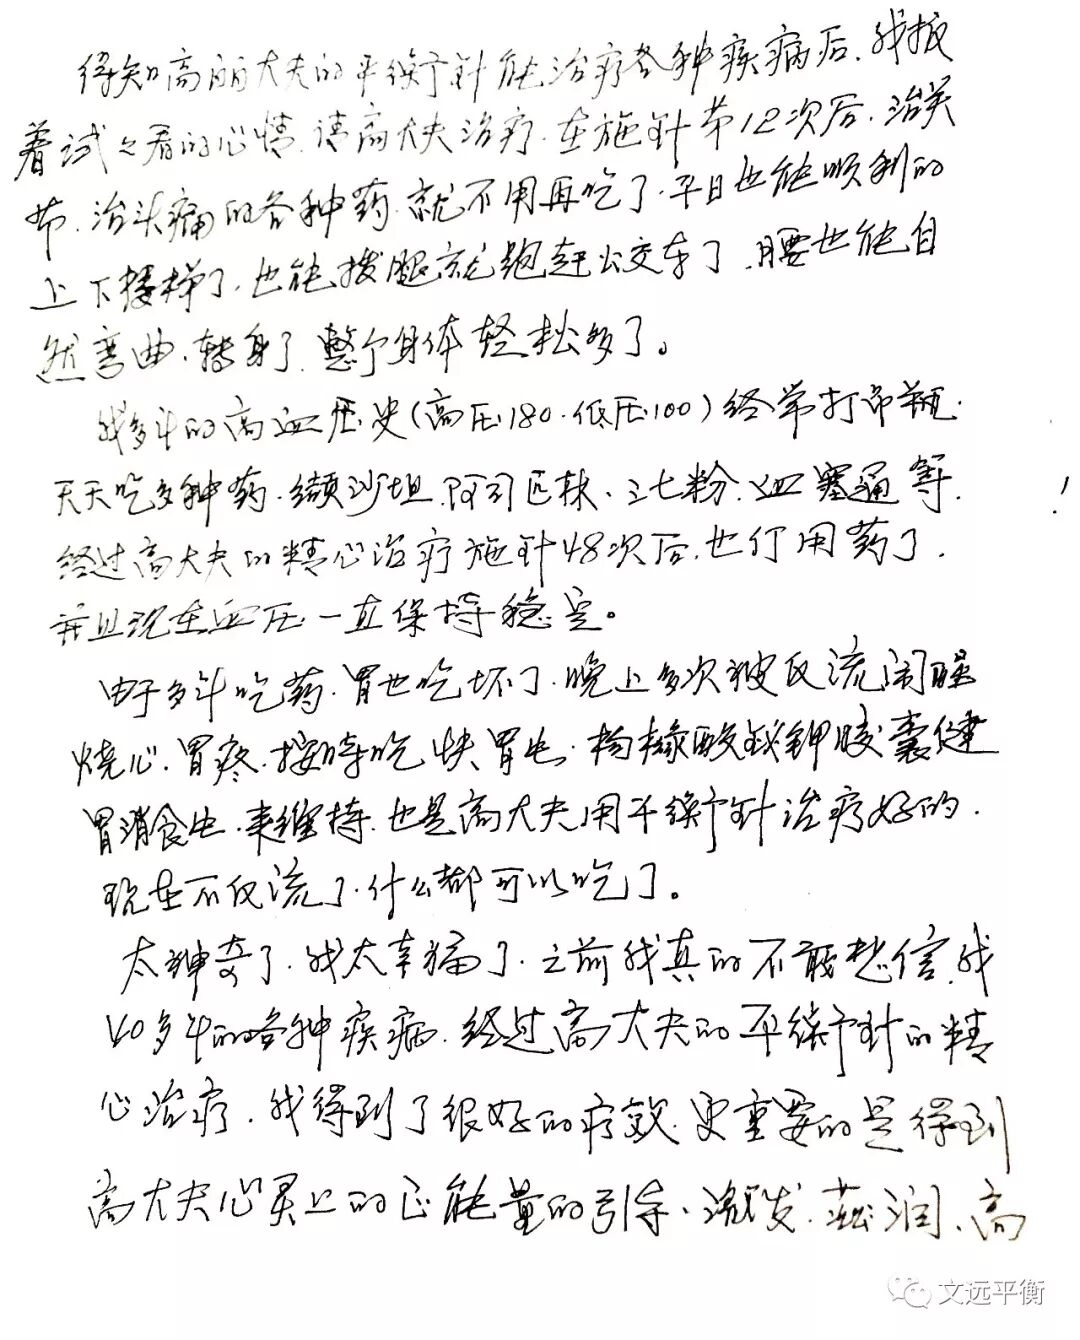 得知高丽大夫的平衡针能治疗各种疾病后、我报
着试之看的心情、请高大夫治疗.在施针第12次后.治关
节、治头痛的各种药.就不用再吃了.平日也能顺利的
上下楼梯了.也能拨腿就跑赶公交车了、腰也能自
然弯曲、转身了、整个身体轻松多了。
我多年的高血压史(高压180.低压100)经常打吊瓶.
天天吃多种药、缬沙坦、阿司匹林、三七粉、血塞通等.
经过高大夫的精心治疗施针48次后.也仃用药了.
并且现在血压一直保持稳定。
由于多年吃药.胃也吃坏了.晚上多次被反流闹醒
烧心.胃疼.按时吃快胃片、枸橼酸铋钾胶囊健
胃消食片.来维持.也是高大夫用平衡针治疗好的.
现在不反流了.什么都可以吃了。
太神奇了.我太幸福了.之前我真的不敢想信.我
40多年的各种疾病.经过高大夫的平衡针的精
心治疗.我得到了很好的疗效.更重要的是得到
高大夫心灵上的正能量的引导、激发、滋润、高
文远平衡